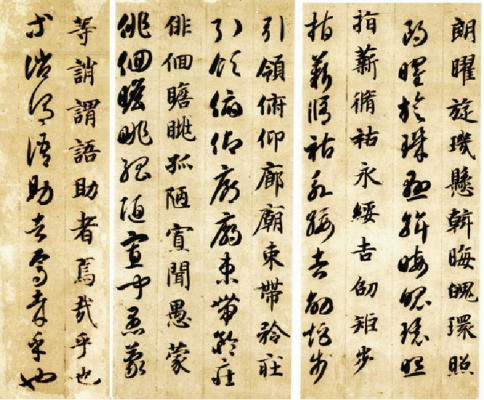 朗曜旋璣懸斡晦魄環照
朗曜旋璣懸斡晦魄環照
指薪脩祜永綏吉劭矩步
指薪脩祜永綏吉劭矩步
引領俯仰廊廟束帶矜莊
引領俯仰廊廟束帶矜莊
俳佪瞻眺孤陋寡聞愚蒙
俳佪瞻眺孤陋寡聞愚蒙
等誚謂語助者焉哉乎也
等誚謂語助者焉哉乎也